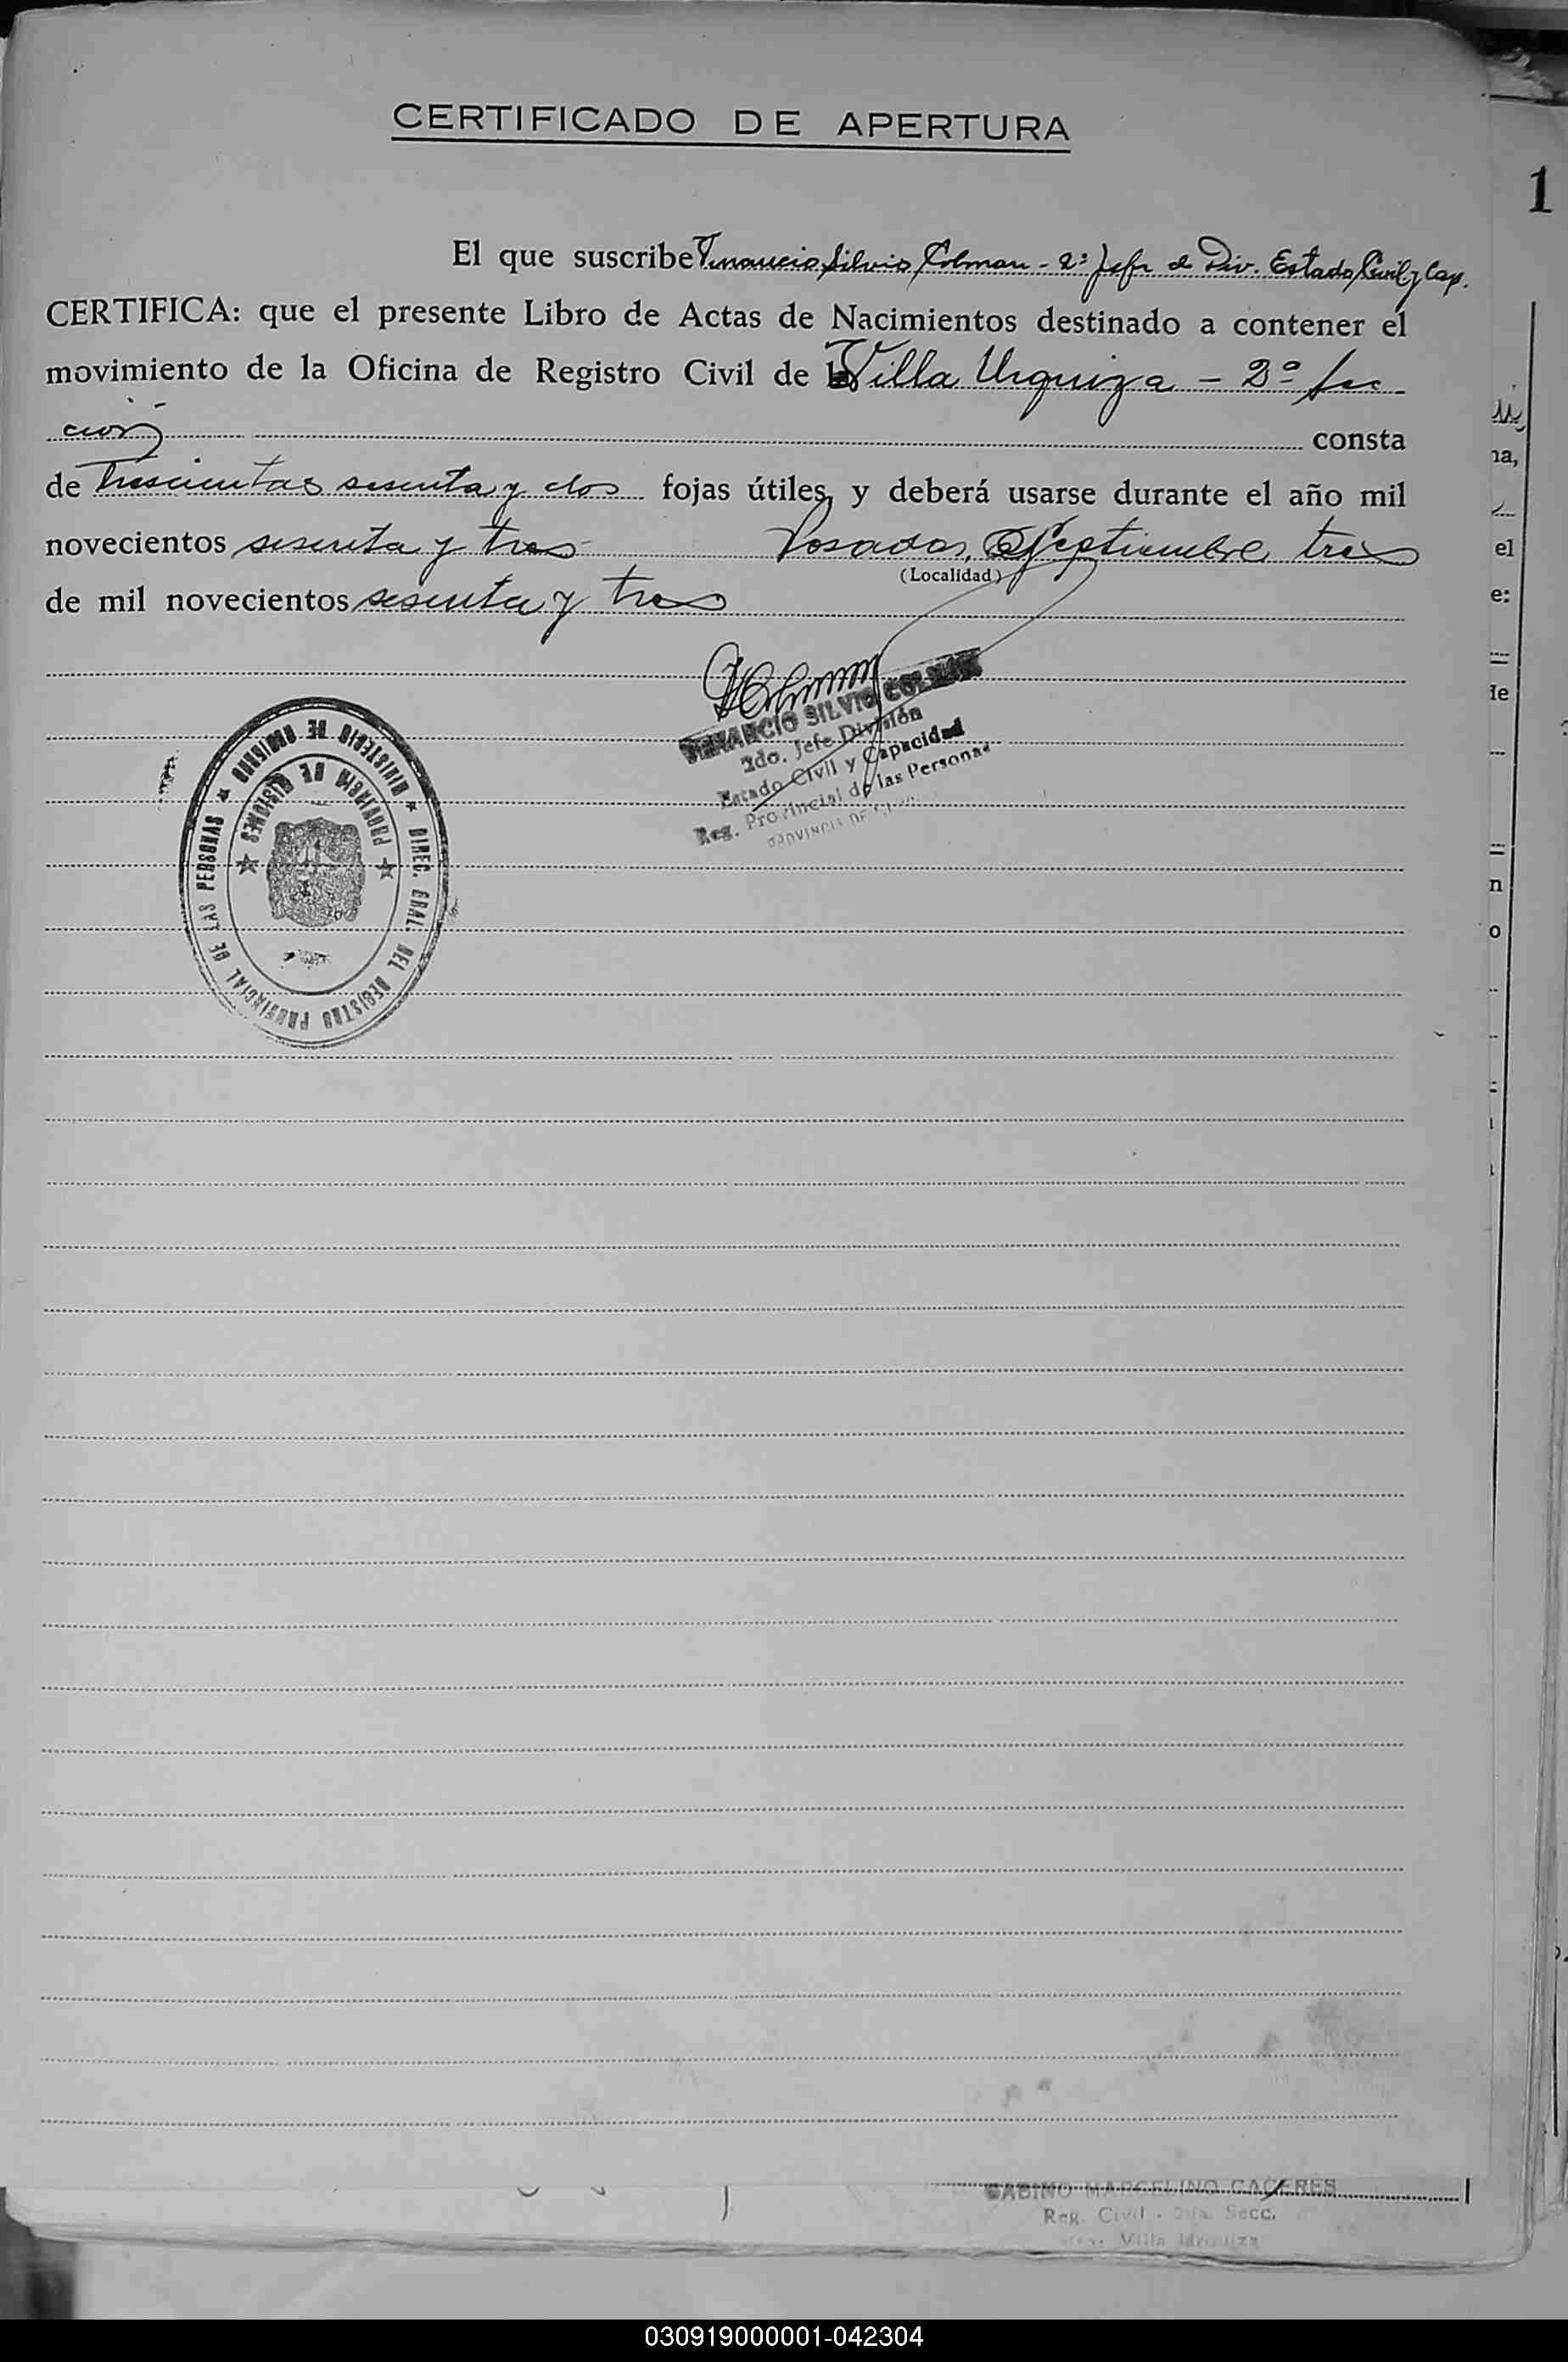 CERTIFICADO DE APERTURA
1
El que suscribe Venancio Silvio Colman - 2º Jefe de Div. Estado Civil y Cap.
CERTIFICA: que el presente Libro de Actas de Nacimientos destinado a contener el
movimiento de la Oficina de Registro Civil de Villa Urquiza - 2º Sec
ción consta
de Trescientas sesenta y dos fojas útiles, y deberá usarse durante el año mil
novecientos sesenta y tres Posadas, Septiembre tres
(Localidad)
de mil novecientos sesenta y tres
VENANCIO SILVIO COLMAN
2do. Jefe División
Estado Civil y Capacidad
Reg. Provincial de las Personas
PROVINCIA DE
MINISTERIO DE GOBIERNO ★ DIREC. GRAL. DEL REGISTRO PROVINCIAL DE LAS PERSONAS ★
PROVINCIA DE MISIONES
na,
el
e:
de
n
o
GABINO MARCELINO CACERES
Reg. Civil - 2da. Secc.
Villa Urquiza
030919000001-042304